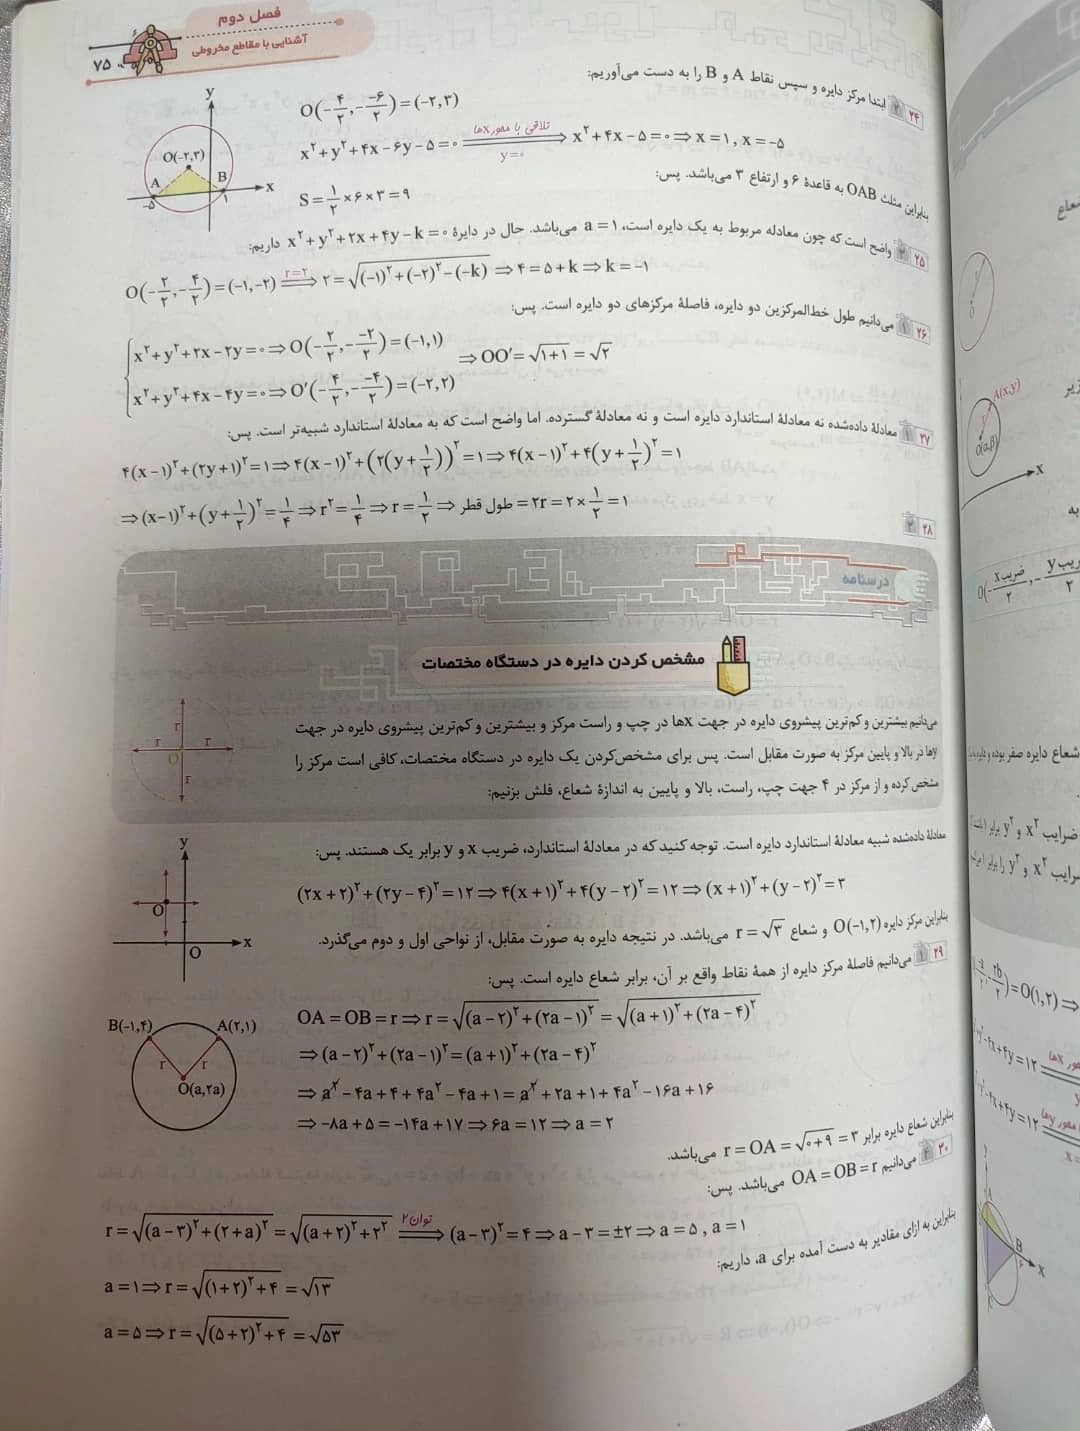 فصل دوم
آشنایی با مقاطع مخروطی
۷۵
۲۴ ۲ ابتدا مرکز دایره و سپس نقاط A و B را به دست می‌آوریم:
O(-۴/۲, -(-۶)/۲) = (-۲,۳)
x²+y²+۴x-۶y-۵=۰ ⇒ (تلاقی با محور xها, y=۰) x²+۴x-۵=۰ ⇒ x=۱, x=-۵
بنابراین مثلث OAB به قاعدهٔ ۶ و ارتفاع ۳ می‌باشد. پس:
S = ۱/۲ × ۶ × ۳ = ۹
y
O(-۲,۳)
A B x
-۵ ۱
۲۵ ۳ واضح است که چون معادله مربوط به یک دایره است، a=۱ می‌باشد. حال در دایرهٔ x²+y²+۲x+۴y-k=۰ داریم:
O(-۲/۲, -۴/۲) = (-۱,-۲) ⇒ (r=۲) ۲ = √((-۱)²+(-۲)²-(-k)) ⇒ ۴=۵+k ⇒ k=-۱
۲۶ ۱ می‌دانیم طول خط‌المرکزین دو دایره، فاصلهٔ مرکزهای دو دایره است. پس:
x²+y²+۲x-۲y=۰ ⇒ O(-۲/۲, -(-۲)/۲) = (-۱,۱)
⇒ OO′ = √(۱+۱) = √۲
x²+y²+۴x-۴y=۰ ⇒ O′(-۴/۲, -(-۴)/۲) = (-۲,۲)
۲۷ ۱ معادلهٔ داده‌شده نه معادلهٔ استاندارد دایره است و نه معادلهٔ گسترده. اما واضح است که به معادلهٔ استاندارد شبیه‌تر است. پس:
۴(x-۱)²+(۲y+۱)²=۱ ⇒ ۴(x-۱)²+(۲(y+۱/۲))²=۱ ⇒ ۴(x-۱)²+۴(y+۱/۲)²=۱
⇒ (x-۱)²+(y+۱/۲)²=۱/۴ ⇒ r²=۱/۴ ⇒ r=۱/۲ ⇒ طول قطر = ۲r = ۲×۱/۲ = ۱
۲۸ ۲
درسنامه
مشخص کردن دایره در دستگاه مختصات
می‌دانیم بیشترین و کم‌ترین پیشروی دایره در جهت xها در چپ و راست مرکز و بیشترین و کم‌ترین پیشروی دایره در جهت
yها در بالا و پایین مرکز به صورت مقابل است. پس برای مشخص‌کردن یک دایره در دستگاه مختصات، کافی است مرکز را
مشخص کرده و از مرکز در ۴ جهت چپ، راست، بالا و پایین به اندازهٔ شعاع، فلش بزنیم:
r
r r
O
r
معادلهٔ داده‌شده شبیه معادلهٔ استاندارد دایره است. توجه کنید که در معادلهٔ استاندارد، ضریب x و y برابر یک هستند. پس:
(۲x+۲)²+(۲y-۴)²=۱۲ ⇒ ۴(x+۱)²+۴(y-۲)²=۱۲ ⇒ (x+۱)²+(y-۲)²=۳
بنابراین مرکز دایره O(-۱,۲) و شعاع r=√۳ می‌باشد. در نتیجه دایره به صورت مقابل، از نواحی اول و دوم می‌گذرد.
y
O
x
O
۲۹ ۱ می‌دانیم فاصلهٔ مرکز دایره از همهٔ نقاط واقع بر آن، برابر شعاع دایره است. پس:
OA=OB=r ⇒ r=√((a-۲)²+(۲a-۱)²) = √((a+۱)²+(۲a-۴)²)
⇒ (a-۲)²+(۲a-۱)²=(a+۱)²+(۲a-۴)²
⇒ a²-۴a+۴+۴a²-۴a+۱=a²+۲a+۱+۴a²-۱۶a+۱۶
⇒ -۸a+۵=-۱۴a+۱۷ ⇒ ۶a=۱۲ ⇒ a=۲
B(-۱,۴) A(۲,۱)
r r
O(a,۲a)
بنابراین شعاع دایره برابر r=OA=√(۰+۹)=۳ می‌باشد.
۳۰ ۲ می‌دانیم OA=OB=r می‌باشد. پس:
r=√((a-۳)²+(۲+a)²) = √((a+۲)²+۲²) ⇒ (توان۲) (a-۳)²=۴ ⇒ a-۳=±۲ ⇒ a=۵, a=۱
بنابراین به ازای مقادیر به دست آمده برای a، داریم:
a=۱ ⇒ r=√((۱+۲)²+۴) = √۱۳
a=۵ ⇒ r=√((۵+۲)²+۴) = √۵۳
A(x,y)
O(α,β)
x
شعاع دایره صفر بوده
ضرایب x² و y² برابر
B
x